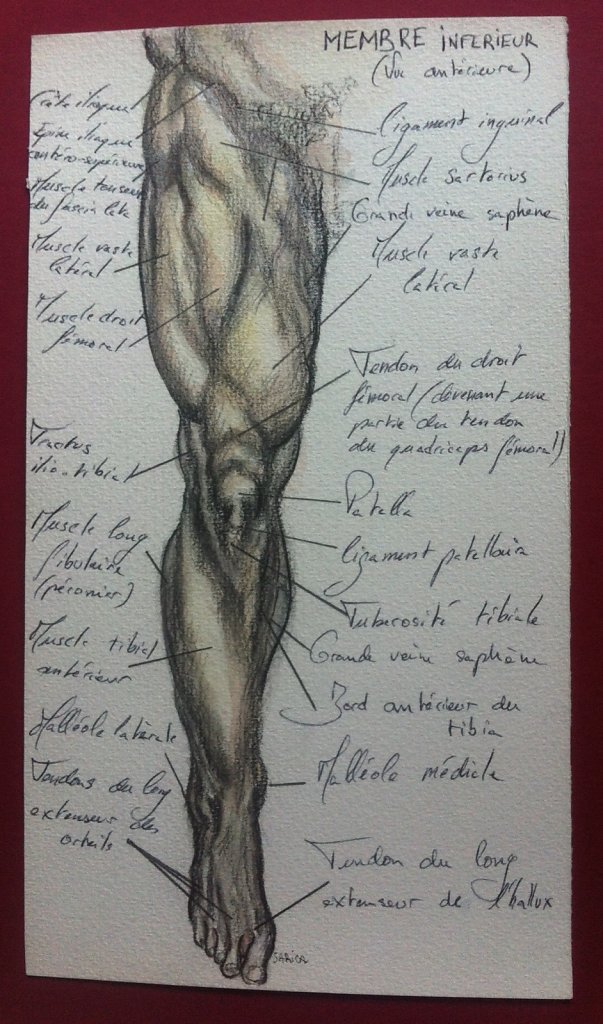 MEMBRE INFERIEUR
(Vue antérieure)
Crête iliaque
Epine iliaque
antéro-supérieure
Muscle tenseur
du fascia lata
Muscle vaste
latéral
Muscle droit
fémoral
Tractus
ilio-tibial
Muscle long
fibulaire
(péronier)
Muscle tibial
antérieur
Malléole latérale
Tendons du long
extenseur des
orteils
ligament inguinal
Muscle sartorius
Grande veine saphène
Muscle vaste
latéral
Tendon du droit
fémoral (devenant une
partie du tendon
du quadriceps fémoral)
Patella
ligament patellaire
Tuberosité tibiale
Grande veine saphène
Bord antérieur du
tibia
Malléole médiale
Tendon du long
extenseur de l'hallux